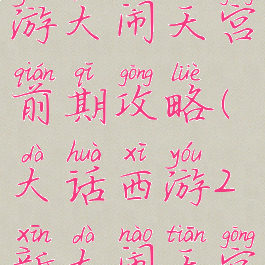 游大闹天宫
qián qī gōng lüè
前期攻略(
dà huà xī yóu
大话西游2
xīn dà nào tiān gōng
新大闹天宫